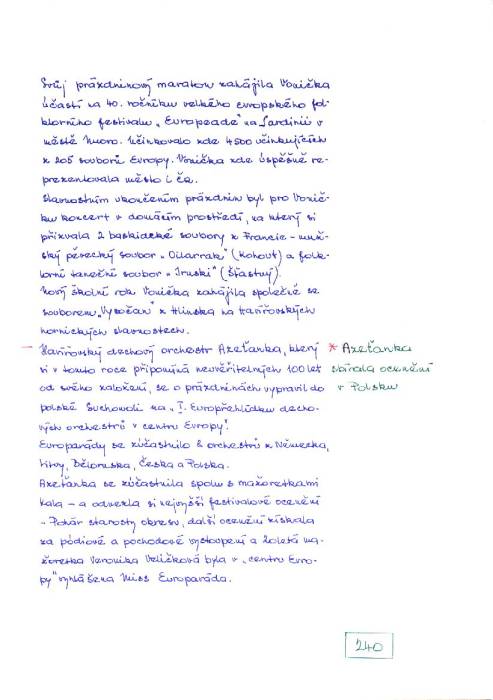 Svůj prázdninový maraton zahájila Vonička
účastí na 40. ročníku velkého evropského fol-
klorního festivalu „Europeade" na Sardinii v
městě Nuoro. Účinkovalo zde 4500 účinkujících
z 205 souborů Evropy. Vonička zde úspěšně re-
prezentovala město i ČR.
Slavnostním ukončením prázdnin byl pro Vonič-
ku koncert v domácím prostředí, na který si
přizvala 2 baskické soubory z Francie - muž-
ský pěvecký soubor „Oilarrak" (Kohout) a folk-
lorní taneční soubor „Iruski" (Šťastný).
Nový školní rok Vonička zahájila společně se
souborem „Vysočan" z Hlinska na Havířovských
hornických slavnostech.
- Havířovský dechový orchestr Azeťanka, který
si v tomto roce připomíná neuvěřitelných 100 let
od svého založení, se o prázdninách vypravil do
polské Suchowoli na „I. Europřehlídku decho-
vých orchestrů v centru Evropy".
Europarády se zúčastnilo 8 orchestrů z Německa,
Litvy, Běloruska, Česka a Polska.
Azeťanka se zúčastnila spolu s mažoretkami
Kala - a odvezla si nejvyšší festivalové ocenění
- Pohár starosty okresu, další ocenění získala
za pódiové a pochodové vystoupení a 20letá ma-
žoretka Veronika Veličková byla v „centru Evro-
py" vyhlášena Miss Europaráda.
* Azeťanka
sbírala ocenění
v Polsku
240